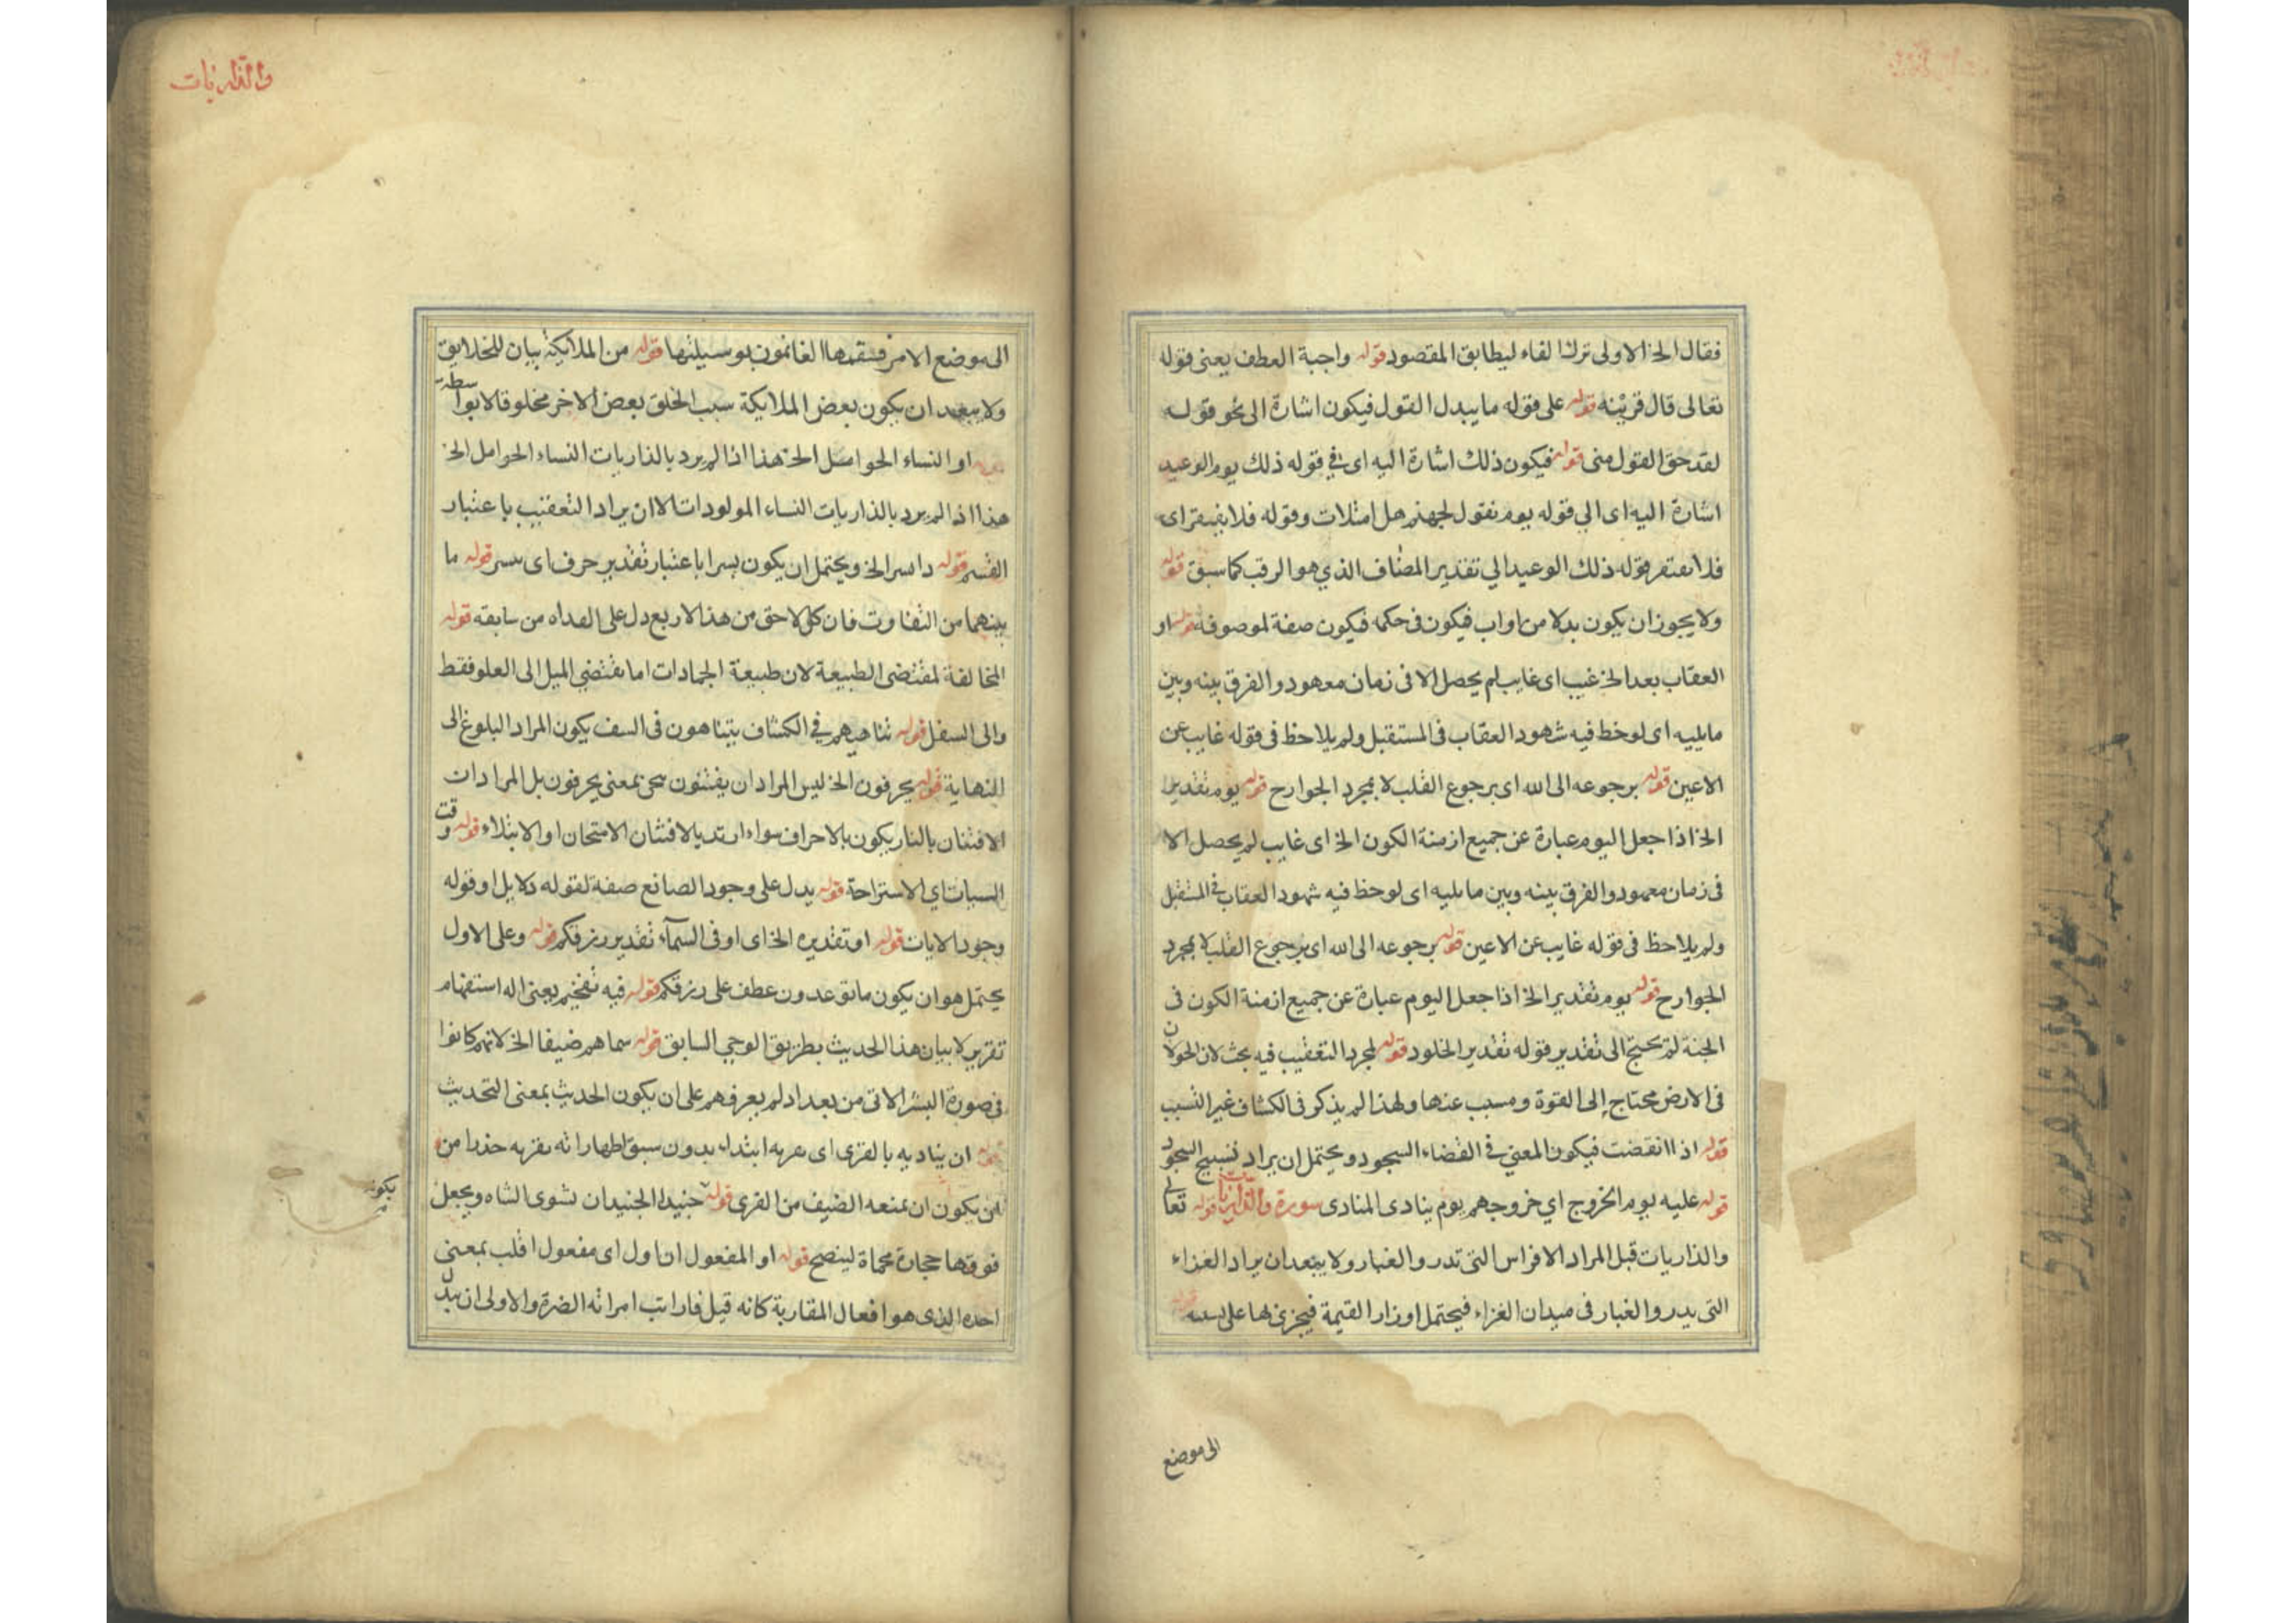 فقال الخ الاولى ترك الفاء ليطابق المقصود قوله واجبة العطف يعنى قوله
تعالى قال قرينه قوله على قوله ما يبدل القول فيكون اشارة الى نحو قوله
لقد حق القول منى قوله فيكون ذلك اشارة اليه اى فى قوله ذلك يوم الوعيد
اشارة اليه اى الي قوله يوم نقول لجهنم هل امتلات وقوله فلا يفتقر اى
فلا يفتقر قوله ذلك الوعيد الي تقدير المضاف الذي هو الرقب كما سبق قوله
ولا يجوز ان يكون بدلا من اواب فيكون فى حكمه فيكون صفة لموصوفه قوله او
العقاب بعد الخ غيب اى غايب لم يحصل الا فى زمان معهود والفرق بينه وبين
ما يليه اى لوحظ فيه شهود العقاب فى المستقبل ولم يلاحظ فى قوله غايب عن
الاعين قوله برجوعه الى الله اى برجوع القلب لا بمجرد الجوارح قوله يوم تقدير
الخ اذا جعل اليوم عبارة عن جميع ازمنة الكون الخ اى غايب لم يحصل الا
فى زمان معهود والفرق بينه وبين ما يليه اى لوحظ فيه شهود العقاب فى المستقبل
ولم يلاحظ فى قوله غايب عن الاعين قوله برجوعه الى الله اى برجوع القلب لا بمجرد
الجوارح قوله يوم تقدير الخ اذا جعل اليوم عبارة عن جميع ازمنة الكون فى
الجنة لم يحتج الى تقدير قوله تقدير الخلود قوله لمجرد التعقيب فيه بحث لان الجولان
فى الارض محتاج إلى القوة ومسبب عنها ولهذا لم يذكر فى الكشاف غير التسبب
قوله اذا انقضت فيكون المعنى في القضاء السجود ويحتمل ان يراد تسبيح السجود
قوله عليه يوم الخروج اي خروجهم يوم ينادى المنادى سورة والذاريات قوله تعالى
والذاريات قبل المراد الافراس التى تدرو الغبار ولا يبعد ان يراد الغزاء
التى يدروا الغبار فى ميدان الغزاء فيحتمل اوزار القيمة فيجزى لها على
الى موضع
والذاريات
الى موضع الامر فتقمها الغانمون بوسيلتها قوله من الملايكة بيان للخلايق
ولا يبعد ان يكون بعض الملايكة سبب الخلق بعض الاخر مخلوقا لا بواسطه
او النساء الحوامل الخ هذا اذا لم يرد بالذاريات النساء الحوامل الخ
هذا اذا لم يرد بالذاريات النساء المولودات الا ان يراد التعقيب باعتبار
القسم قوله الخ ويحتمل ان يكون يسرا باعتبار تقدير حرف اى بيسر قوله ما
بينهما من التفاوت فان كل لاحق من هذا الاربع دل على من سابقه قوله
المخالفة لمقتضى الطبيعة لان طبيعة الجمادات اما تقتضي الميل الى العلو فقط
والى السفل قوله تناهيهم في الكشاف يتناهون فى السف يكون المراد البلوغ الى
النهاية قوله يحرفون الخ ليس المراد ان يفتنون بمعنى يحرفون بل المراد ان
الافتنان بالنار يكون بالاحراف سواء بالافتنان الامتحان او الابتلاء قوله وقت
السبات اي الاستراحة قوله يدل على وجود الصانع صفة لقوله دلايل او قوله
وجود الايات قوله او تقديره الخ اى او فى السمآء تقدير رزقكم قوله وعلى الاول
يحتمل هو ان يكون ما توعدون عطف على رزقكم قوله فيه تفخيم يعنى اله استفهام
تقرير لا بيان هذا الحديث بطريق الوحي السابق قوله سماهم ضيفا الخ لانهم كانوا
فى صورة البشر الاتى من بعد اد لم يعرفهم على ان يكون الحديث بمعنى التحديث
ان يناديه بالقرى اى ابتداء بدون سبق اظهار انه يقربه حذرا من
ان يكون ان يمنعه الضيف من القرى قوله حنيذا الجنيد ان تشوى الشاه ويجعل
يكونه
فوقها حجارة محماة لينضج قوله او المفعول ان اول اى مفعول اقلب بمعنى
احده الذى هو افعال المقاربة كانه قيل فارابت امراته الضرة والاولى ان يبدل